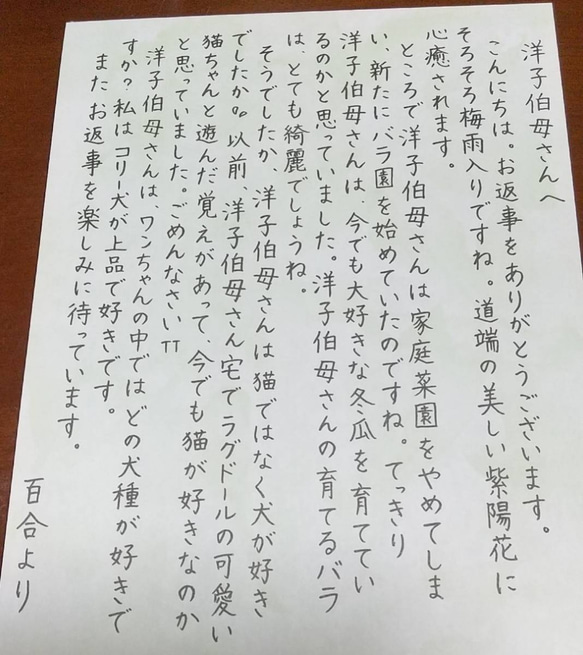 洋子伯母さんへ
こんにちは。お返事をありがとうございます。
そろそろ梅雨入りですね。道端の美しい紫陽花に
心癒されます。
ところで洋子伯母さんは家庭菜園をやめてしま
い、新たにバラ園を始めていたのですね。てっきり
洋子伯母さんは、今でも大好きな冬瓜を育ててい
るのかと思っていました。洋子伯母さんの育てるバラ
は、とても綺麗でしょうね。
そうでしたか、洋子伯母さんは猫ではなく犬が好き
でしたか。。以前、洋子伯母さん宅でラグドールの可愛い
猫ちゃんと遊んだ覚えがあって、今でも猫が好きなのか
と思っていました。ごめんなさいTT
洋子伯母さんは、ワンちゃんの中ではどの犬種が好きで
すか?私はコリー犬が上品で好きです。
またお返事を楽しみに待っています。
百合より